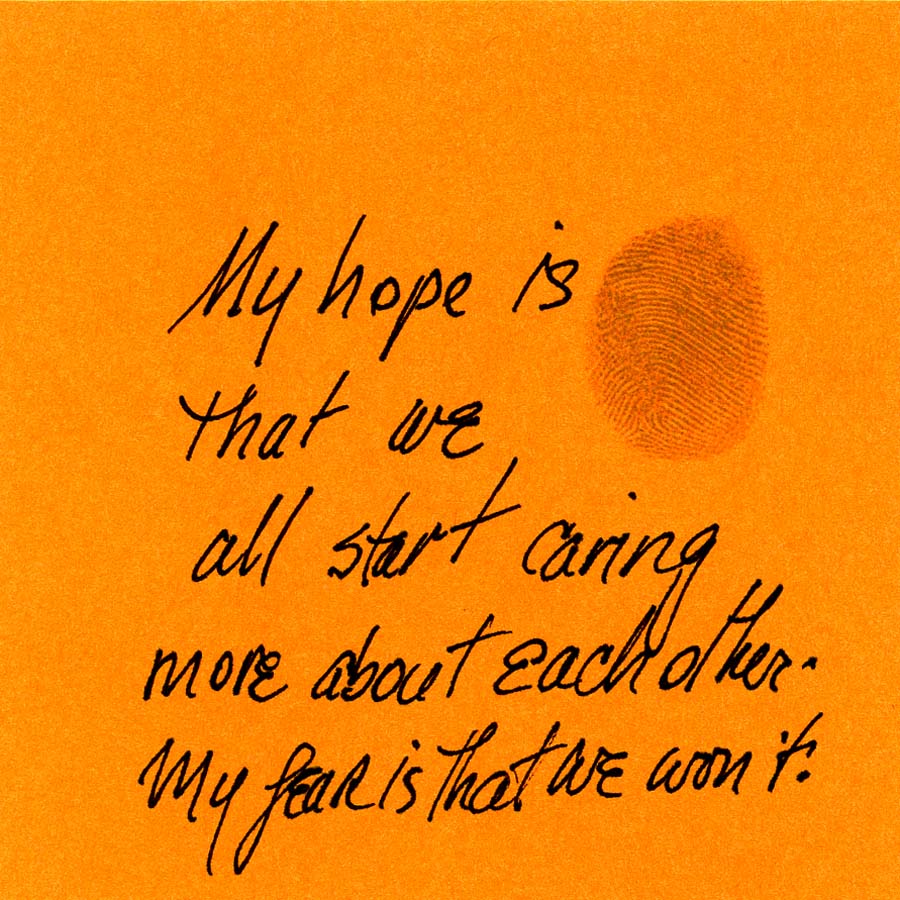 My hope is
that we
all start caring
more about each other.
My fear is that we won't.